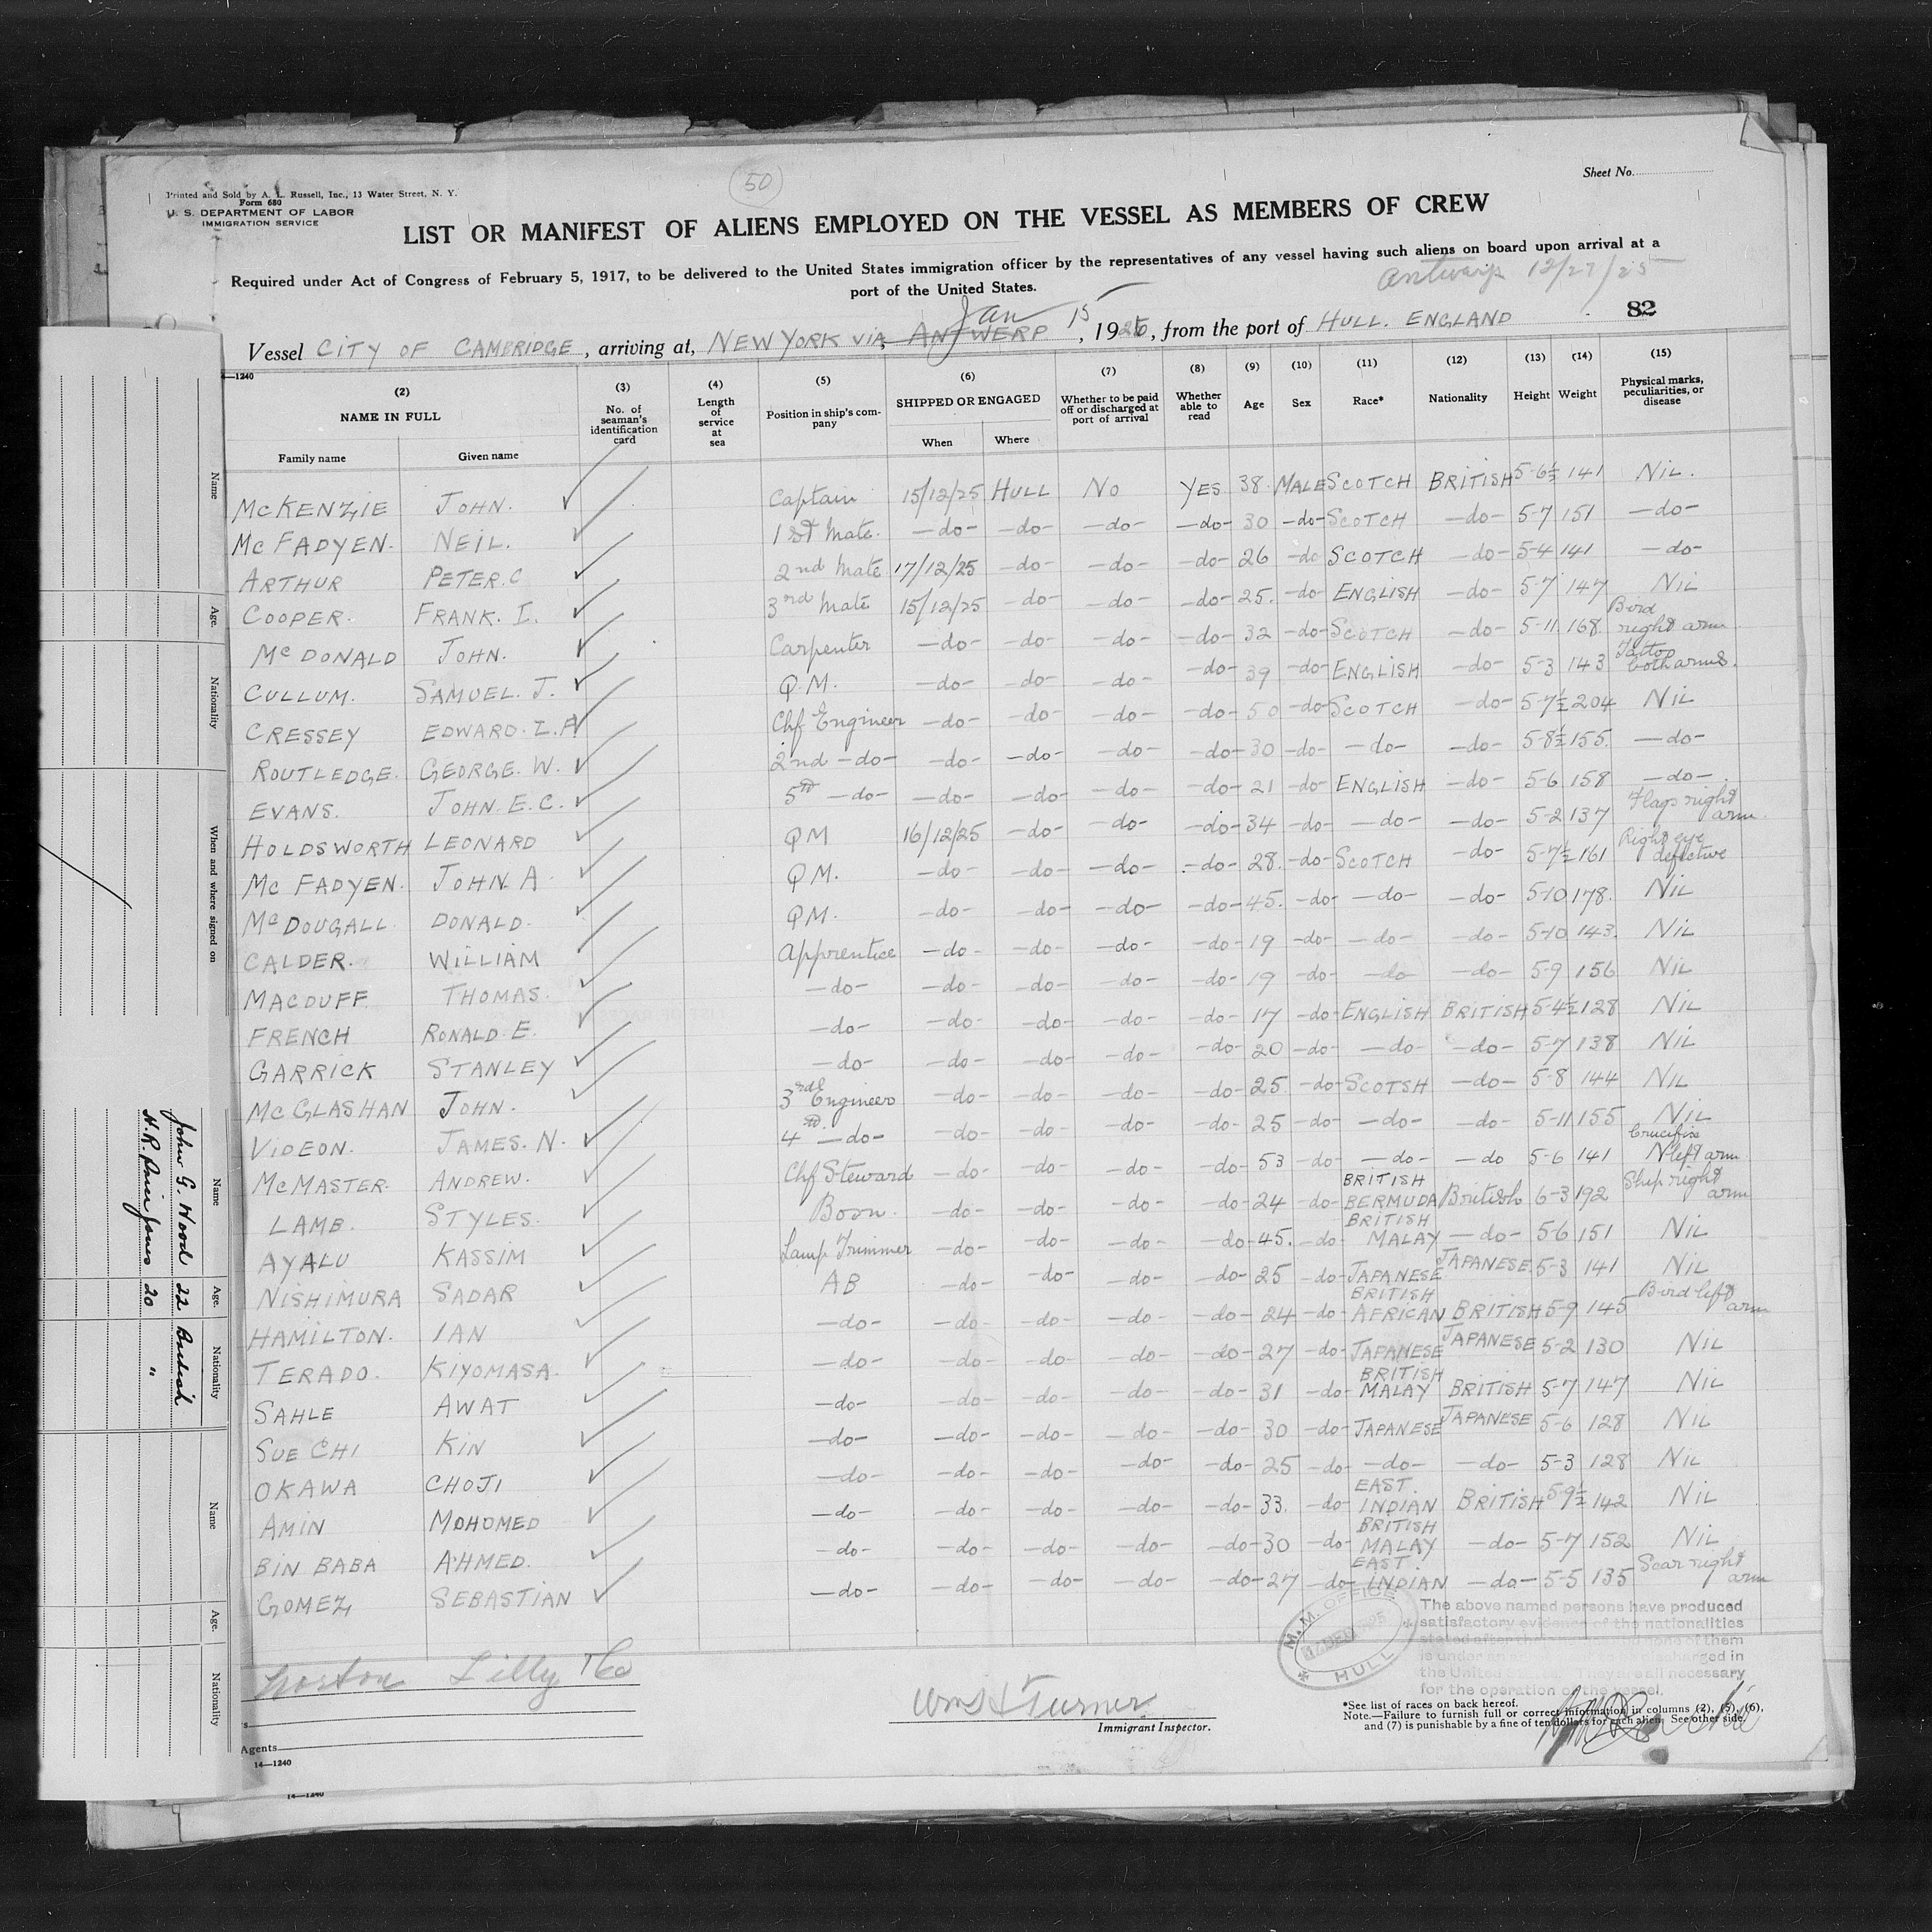 50
Sheet No.
Printed and Sold by A. L. Russell, Inc., 13 Water Street, N. Y.
Form 680
U. S. DEPARTMENT OF LABOR
IMMIGRATION SERVICE
LIST OR MANIFEST OF ALIENS EMPLOYED ON THE VESSEL AS MEMBERS OF CREW
Required under Act of Congress of February 5, 1917, to be delivered to the United States immigration officer by the representatives of any vessel having such aliens on board upon arrival at a
port of the United States.
Antwerp 12/27/25
Jan 15
82
Vessel CITY OF CAMBRIDGE, arriving at, NEW YORK VIA ANTWERP, 1926, from the port of HULL. ENGLAND
4—1240
(2) NAME IN FULL Family name Given name
(3) No. of seaman's identification card
(4) Length of service at sea
(5) Position in ship's company
(6) SHIPPED OR ENGAGED When Where
(7) Whether to be paid off or discharged at port of arrival
(8) Whether able to read
(9) Age
(10) Sex
(11) Race*
(12) Nationality
(13) Height
(14) Weight
(15) Physical marks, peculiarities, or disease
McKENZIE JOHN. Captain 15/12/25 HULL NO YES 38 MALE SCOTCH BRITISH 5-6½ 141 NIL.
McFADYEN. NEIL. 1st Mate. —do— —do— —do— —do— 30 —do— SCOTCH —do— 5-7 151 —do—
ARTHUR PETER.C 2nd Mate 17/12/25 —do— —do— —do— 26 —do SCOTCH —do— 5-4 141 —do—
COOPER. FRANK. I. 3rd Mate 15/12/25 —do— —do— —do— 25. —do— ENGLISH —do— 5-7 147 NIL
McDONALD JOHN. Carpenter —do— —do— —do— —do— 32 —do— SCOTCH —do— 5-11 168 Bird right arm
CULLUM. SAMUEL. J. Q.M. —do— —do— —do— —do— 39 —do— ENGLISH —do— 5-3 143 Tattoo both arms.
CRESSEY EDWARD. Chf Engineer —do— —do— —do— —do— 50 —do— SCOTCH —do— 5-7½ 204 NIL
ROUTLEDGE. GEORGE. W. 2nd —do— —do— —do— —do— —do— 30 —do— —do— —do— 5-8½ 155. —do—
EVANS. JOHN. E. C. 5th —do— —do— —do— —do— —do— 21 —do— ENGLISH —do— 5-6 158 —do—
HOLDSWORTH LEONARD QM 16/12/25 —do— —do— —do— 34 —do— —do— —do— 5-2 137 Flags right arm.
McFADYEN. JOHN. A QM. —do— —do— —do— —do— 28. —do— SCOTCH —do— 5-7½ 161 Right eye defective
McDOUGALL DONALD. QM. —do— —do— —do— —do— 45. —do— —do— —do— 5-10 178. NIL
CALDER. WILLIAM Apprentice —do— —do— —do— —do— 19 —do— —do— —do— 5-10 143. NIL
MACDUFF. THOMAS. —do— —do— —do— —do— —do— 19 —do— —do— —do— 5-9 156 NIL
FRENCH RONALD E. —do— —do— —do— —do— —do— 17 —do— ENGLISH BRITISH 5-4½ 128 NIL
GARRICK STANLEY —do— —do— —do— —do— —do— 20 —do— —do— —do— 5-7 138 NIL
McGLASHAN JOHN. 3rd Engineer —do— —do— —do— —do— 25 —do— SCOTSH —do— 5-8 144 NIL
VIDEON. JAMES. N. 4th —do— —do— —do— —do— —do— 25 —do— —do— —do— 5-11 155 NIL
McMASTER ANDREW. Chf Steward —do— —do— —do— —do— 53 —do— —do— —do 5-6 141 Crucifix left arm
LAMB. STYLES. Bosn. —do— —do— —do— —do— 24 —do— BRITISH BERMUDA British 6-3 192 Ship right arm
AYALU KASSIM Lamp Trimmer —do— —do— —do— —do— 45. —do— BRITISH MALAY —do— 5-6 151 NIL
NISHIMURA SADAR AB —do— —do— —do— —do— 25 —do— JAPANESE JAPANESE. 5-3 141 NIL
HAMILTON. IAN —do— —do— —do— —do— —do— 24 —do— BRITISH AFRICAN BRITISH 5-9 145 Bird left arm
TERADO. KIYOMASA. —do— —do— —do— —do— —do— 27 —do— JAPANESE JAPANESE 5-2 130 NIL
SAHLE AWAT —do— —do— —do— —do— —do— 31 —do— BRITISH MALAY BRITISH 5-7 147 NIL
SUE CHI KIN —do— —do— —do— —do— —do— 30 —do— JAPANESE JAPANESE 5-6 128 NIL
OKAWA CHOJI —do— —do— —do— —do— —do— 25 —do— —do— —do— 5-3 128 NIL
AMIN MOHOMED —do— —do— —do— —do— —do— 33. —do— EAST. INDIAN BRITISH 5-9½ 142 NIL
BIN BABA AHMED. —do— —do— —do— —do— —do— 30 —do— BRITISH MALAY —do— 5-7 152 NIL
GOMEZ SEBASTIAN —do— —do— —do— —do— —do— 27 —do— EAST INDIAN —do— 5-5 135 Scar right arm
M.M. OFFICE
HULL
The above named persons have produced
satisfactory evidence of the nationalities
the United States. They are all necessary
for the operation of the vessel.
Norton Lilly & Co
Agents
14—1240
Wm S Turner
Immigrant Inspector.
*See list of races on back hereof.
Note.—Failure to furnish full or correct information in columns (2), (5), (6),
and (7) is punishable by a fine of ten dollars for each alien. See other side.
14—1240
Name
Age.
Nationality
When and where signed on
Name
Age.
Nationality
John G. Wood 22 British
20 "
Name
Age.
Nationality